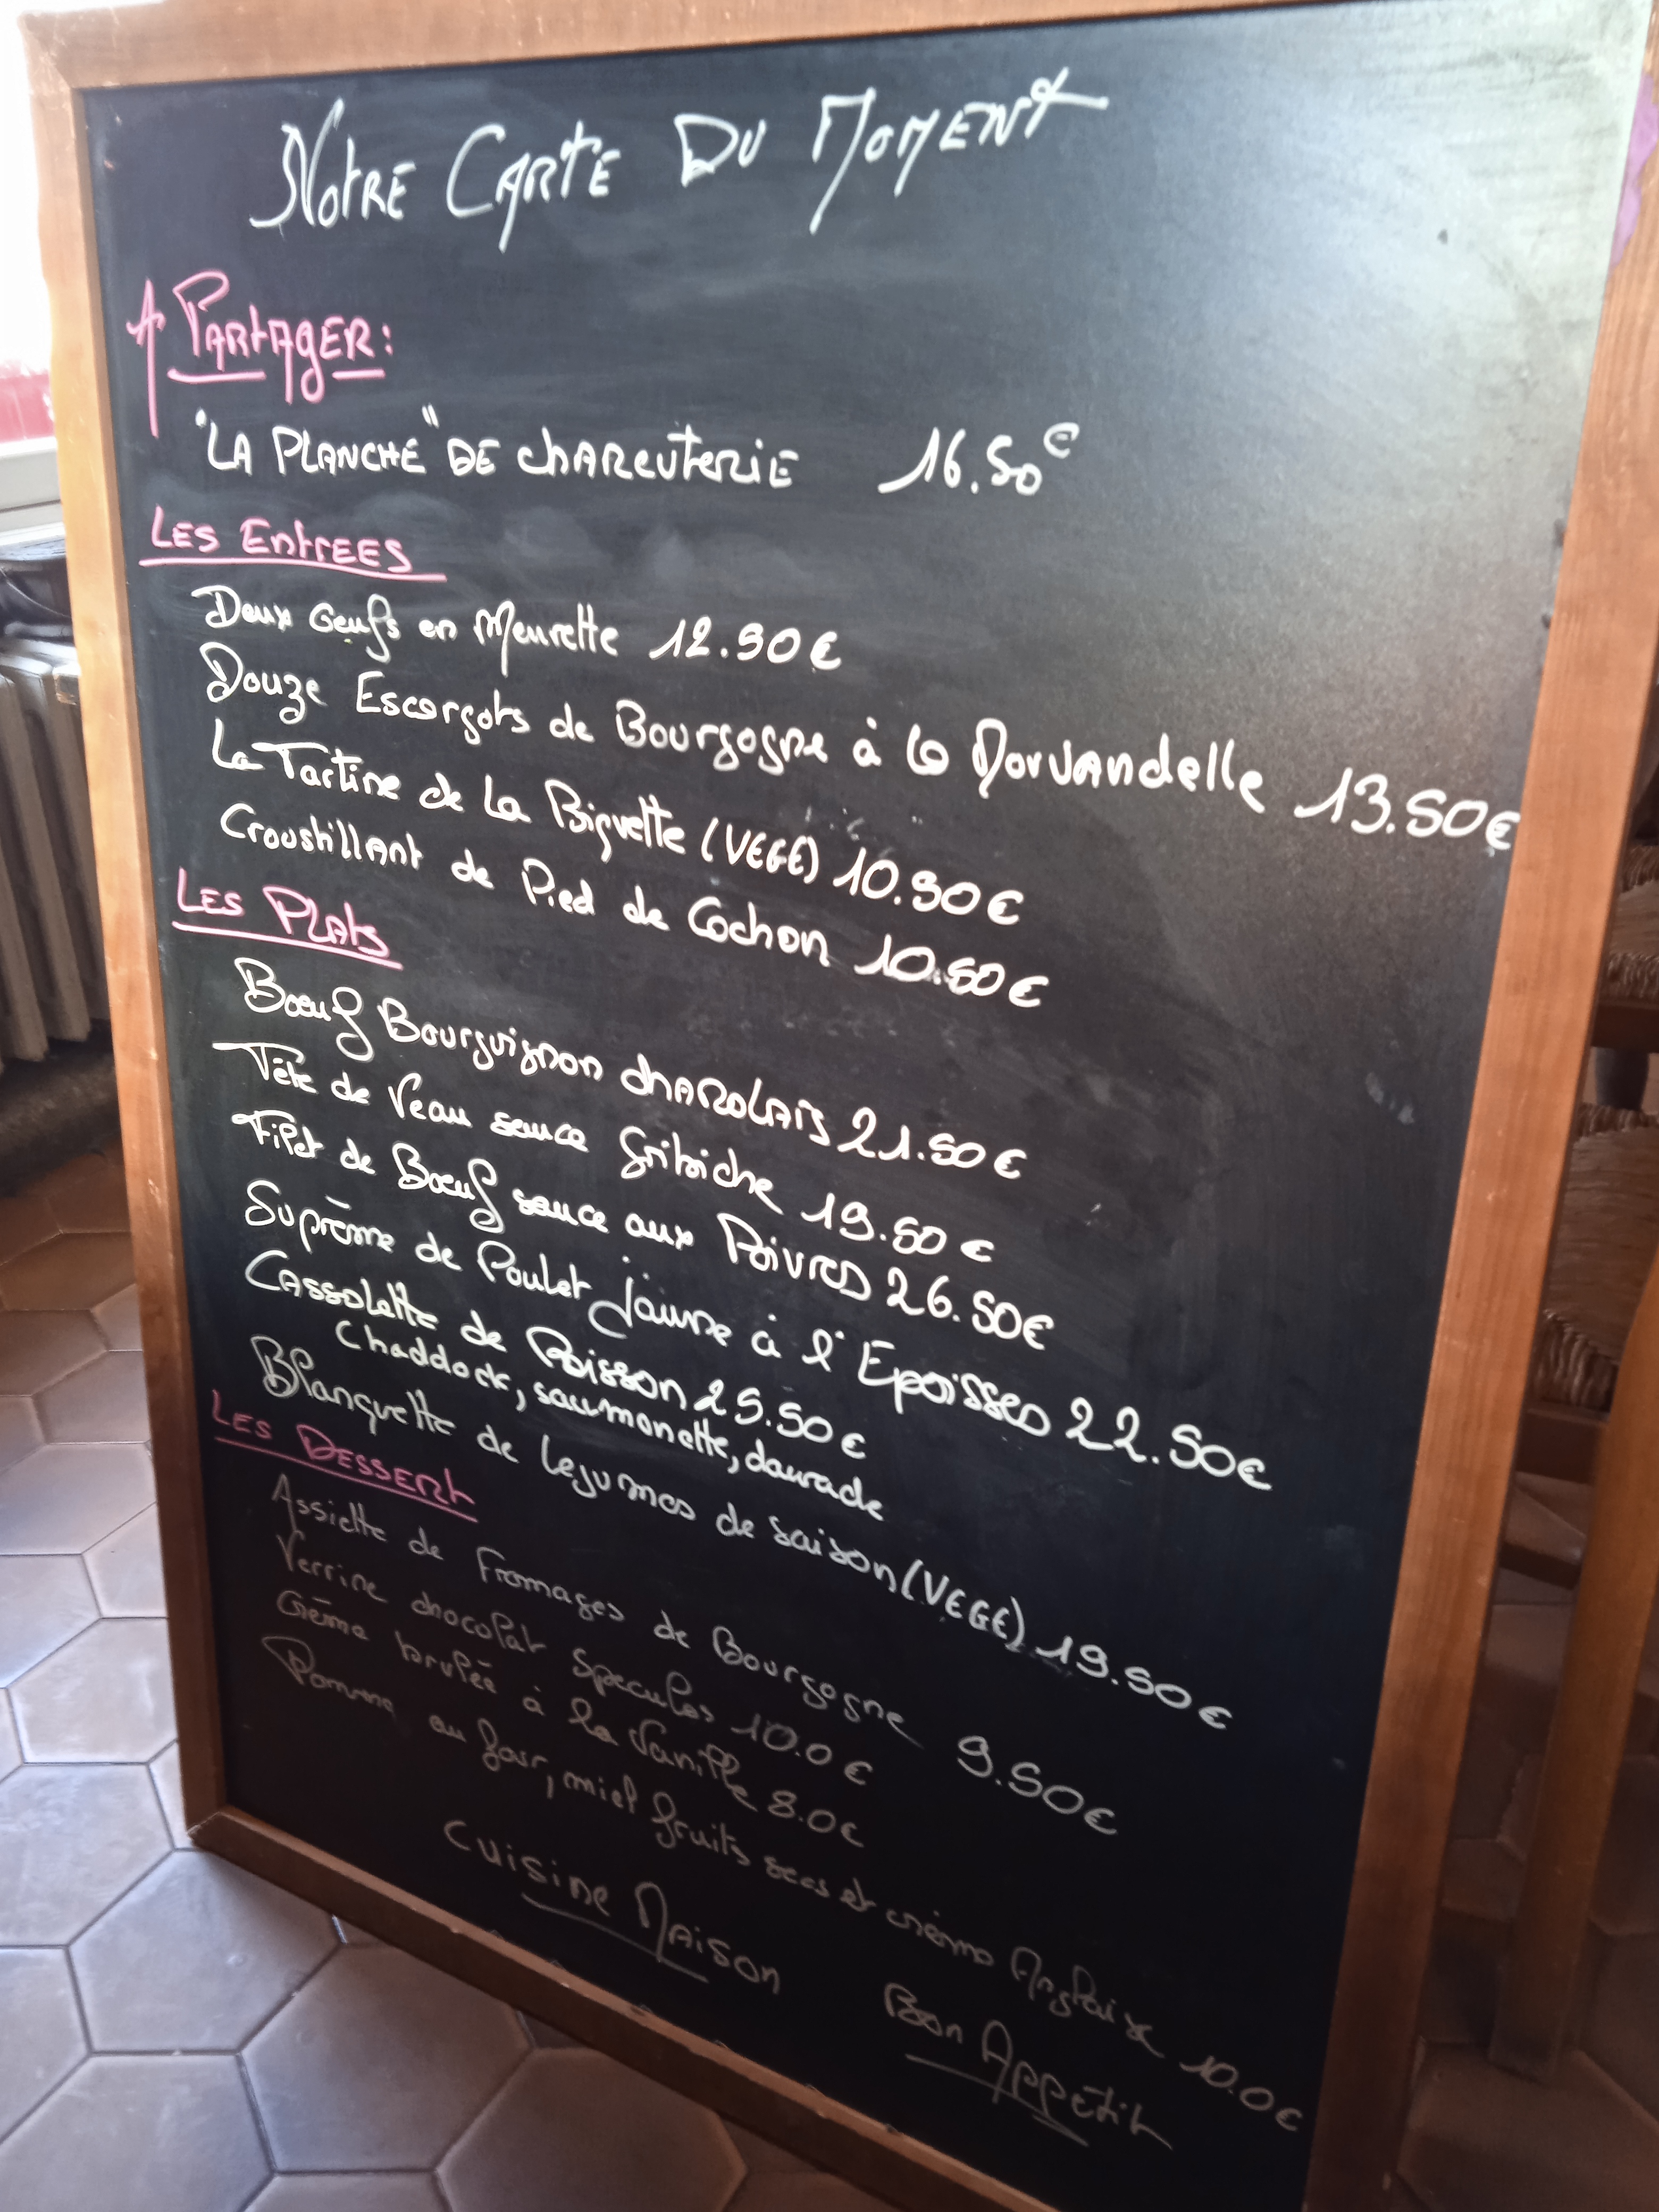 NOTRE CARTE DU MOMENT
A PARTAGER:
"LA PLANCHE" DE CHARCUTERIE 16.50€
LES ENTREES
Deux Oeufs en Meurette 12.50€
Douze Escargots de Bourgogne à la Morvandelle 13.50€
La Tartine de La Biquette (VEGE) 10.50€
Croustillant de Pied de Cochon 10.50€
LES PLATS
Boeuf Bourguignon CHAROLAIS 21.50€
Tête de Veau sauce Gribiche 19.50€
Filet de Boeuf sauce aux Poivres 26.50€
Suprême de Poulet jaune à l'Epoisses 22.50€
Cassolette de Poisson 25.50€
Chaddock, saumonette, daurade
Blanquette de legumes de saison (VEGE) 19.50€
LES DESSERT
Assiette de Fromages de Bourgogne 9.50€
Verrine chocolat Speculos 10.0€
Crème brulée à la Vanille 8.0€
Pomme au four, miel fruits secs et crème Anglaise 10.0€
CUISINE MAISON
BON APPETIT